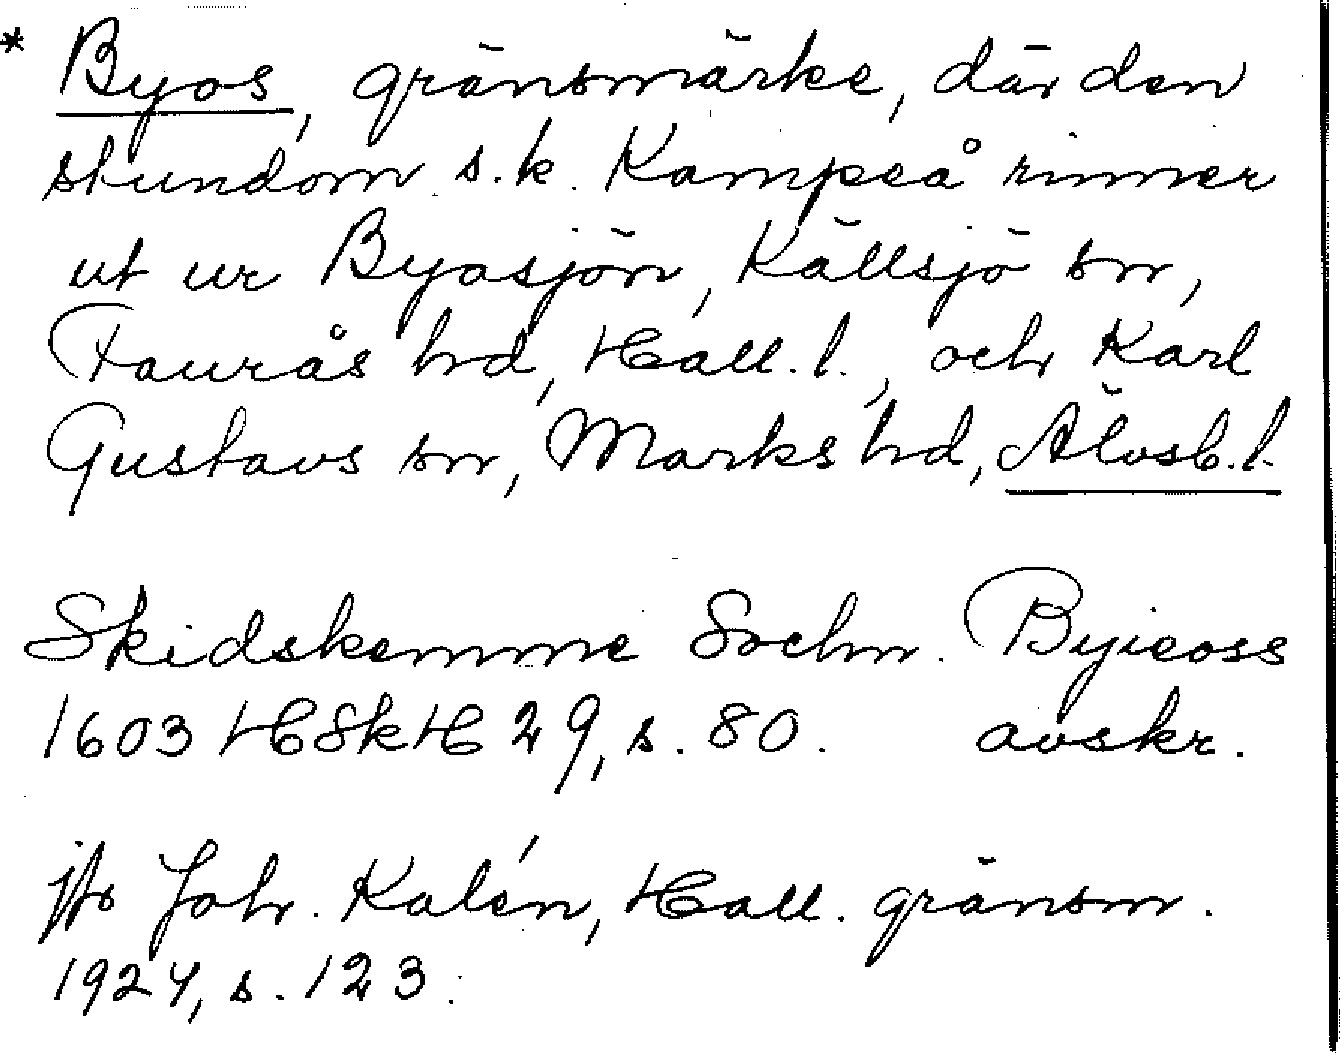 * Byos, gränsmärke, där den
stundom s.k. Kampeå rinner
ut ur Byasjön, Källsjö sn,
Faurås hd, Hall. l., och Karl
Gustavs sn, Marks hd, Älvsb. l.
Skidskemme Sochn. Byieoss
1603 HSkH 29, s. 80. avskr.
jfr Joh. Kalén, Hall. gränsm.
1924, s. 123.